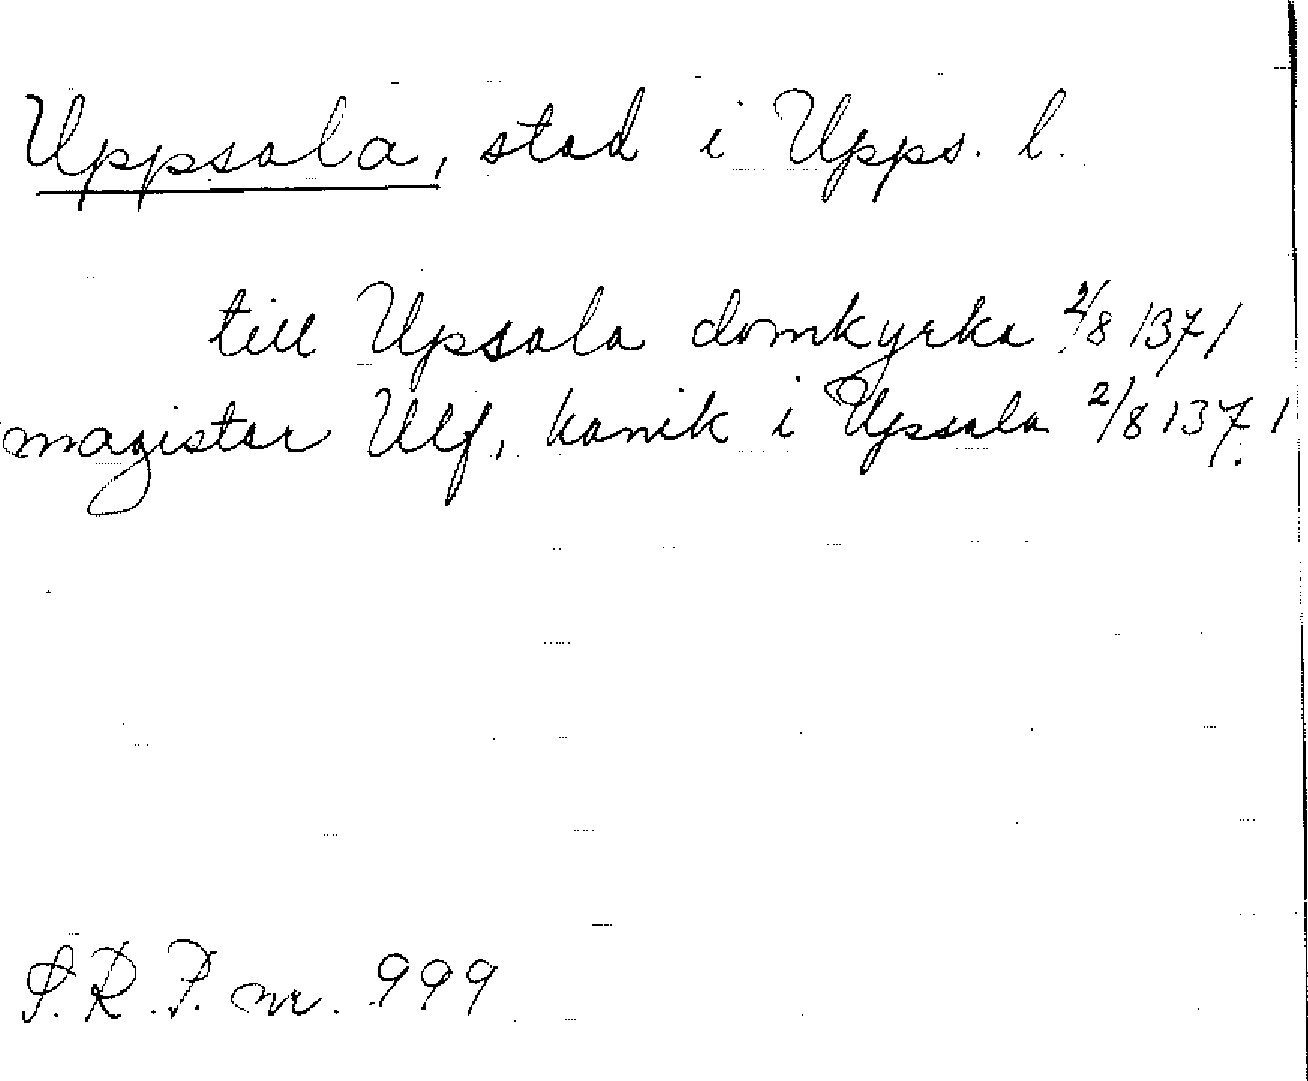 Uppsala, stad i Upps. l.
till Upsala domkyrka 2/8 1371
magister Ulf, kanik i Upsala 2/8 1371
S.R.P. nr. 999